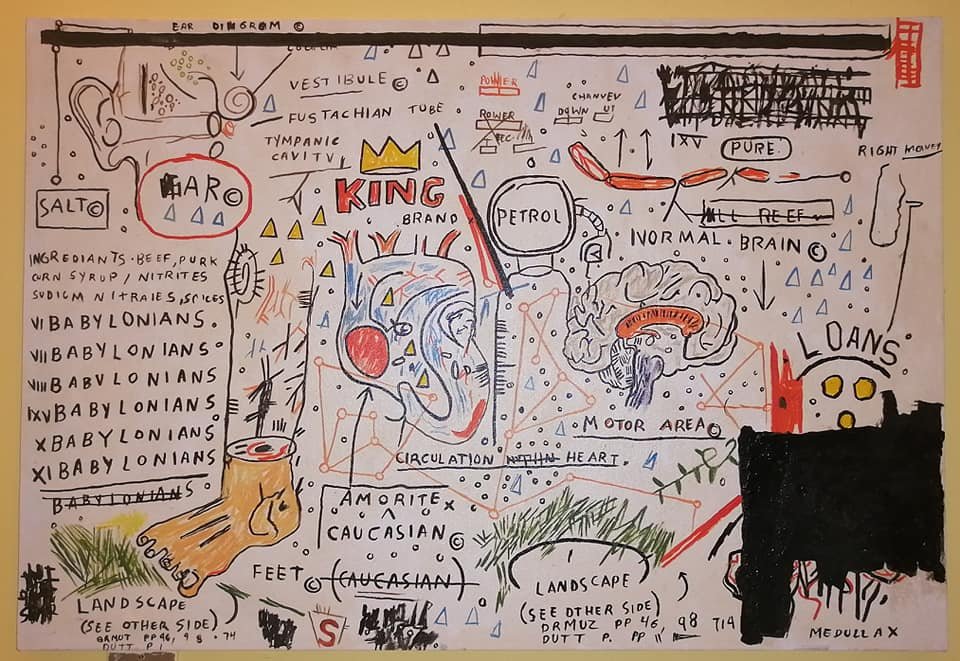 EAR DIAGRAM ©
VESTIBULE ©
EUSTACHIAN TUBE
TYMPANIC
CAVITY
KING
BRAND
EAR ©
SALT ©
INGREDIANTS-BEEF, PURK
CORN SYRUP / NITRITES
SODIUM NITRAIES, SPICES
VI BABYLONIANS.
VII BABYLONIANS
VIII BABYLONIANS
IXV BABYLONIANS
X BABYLONIANS
XI BABYLONIANS
BABYLONIANS
POWER
POWER
DOWN
UT
PETROL
IXV
PURE.
RIGHT
NORMAL. BRAIN ©
LOANS
MOTOR AREA ©
CIRCULATION WITHIN HEART.
AMORITE X
CAUCASIAN ©
FEET © (CAUCASIAN)
S
LANDSCAPE
(SEE OTHER SIDE)
DUTT P. 1
LANDSCAPE
(SEE OTHER SIDE)
DRMUZ PP 46, 98 714
DUTT P. PP 11
MEDULLA X